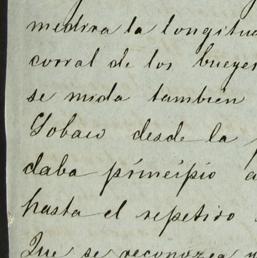 medirá la longitu
corral de los bueyes
se mida tambien
desde la
daba principio a
hasta el repetido
Que se reconozca